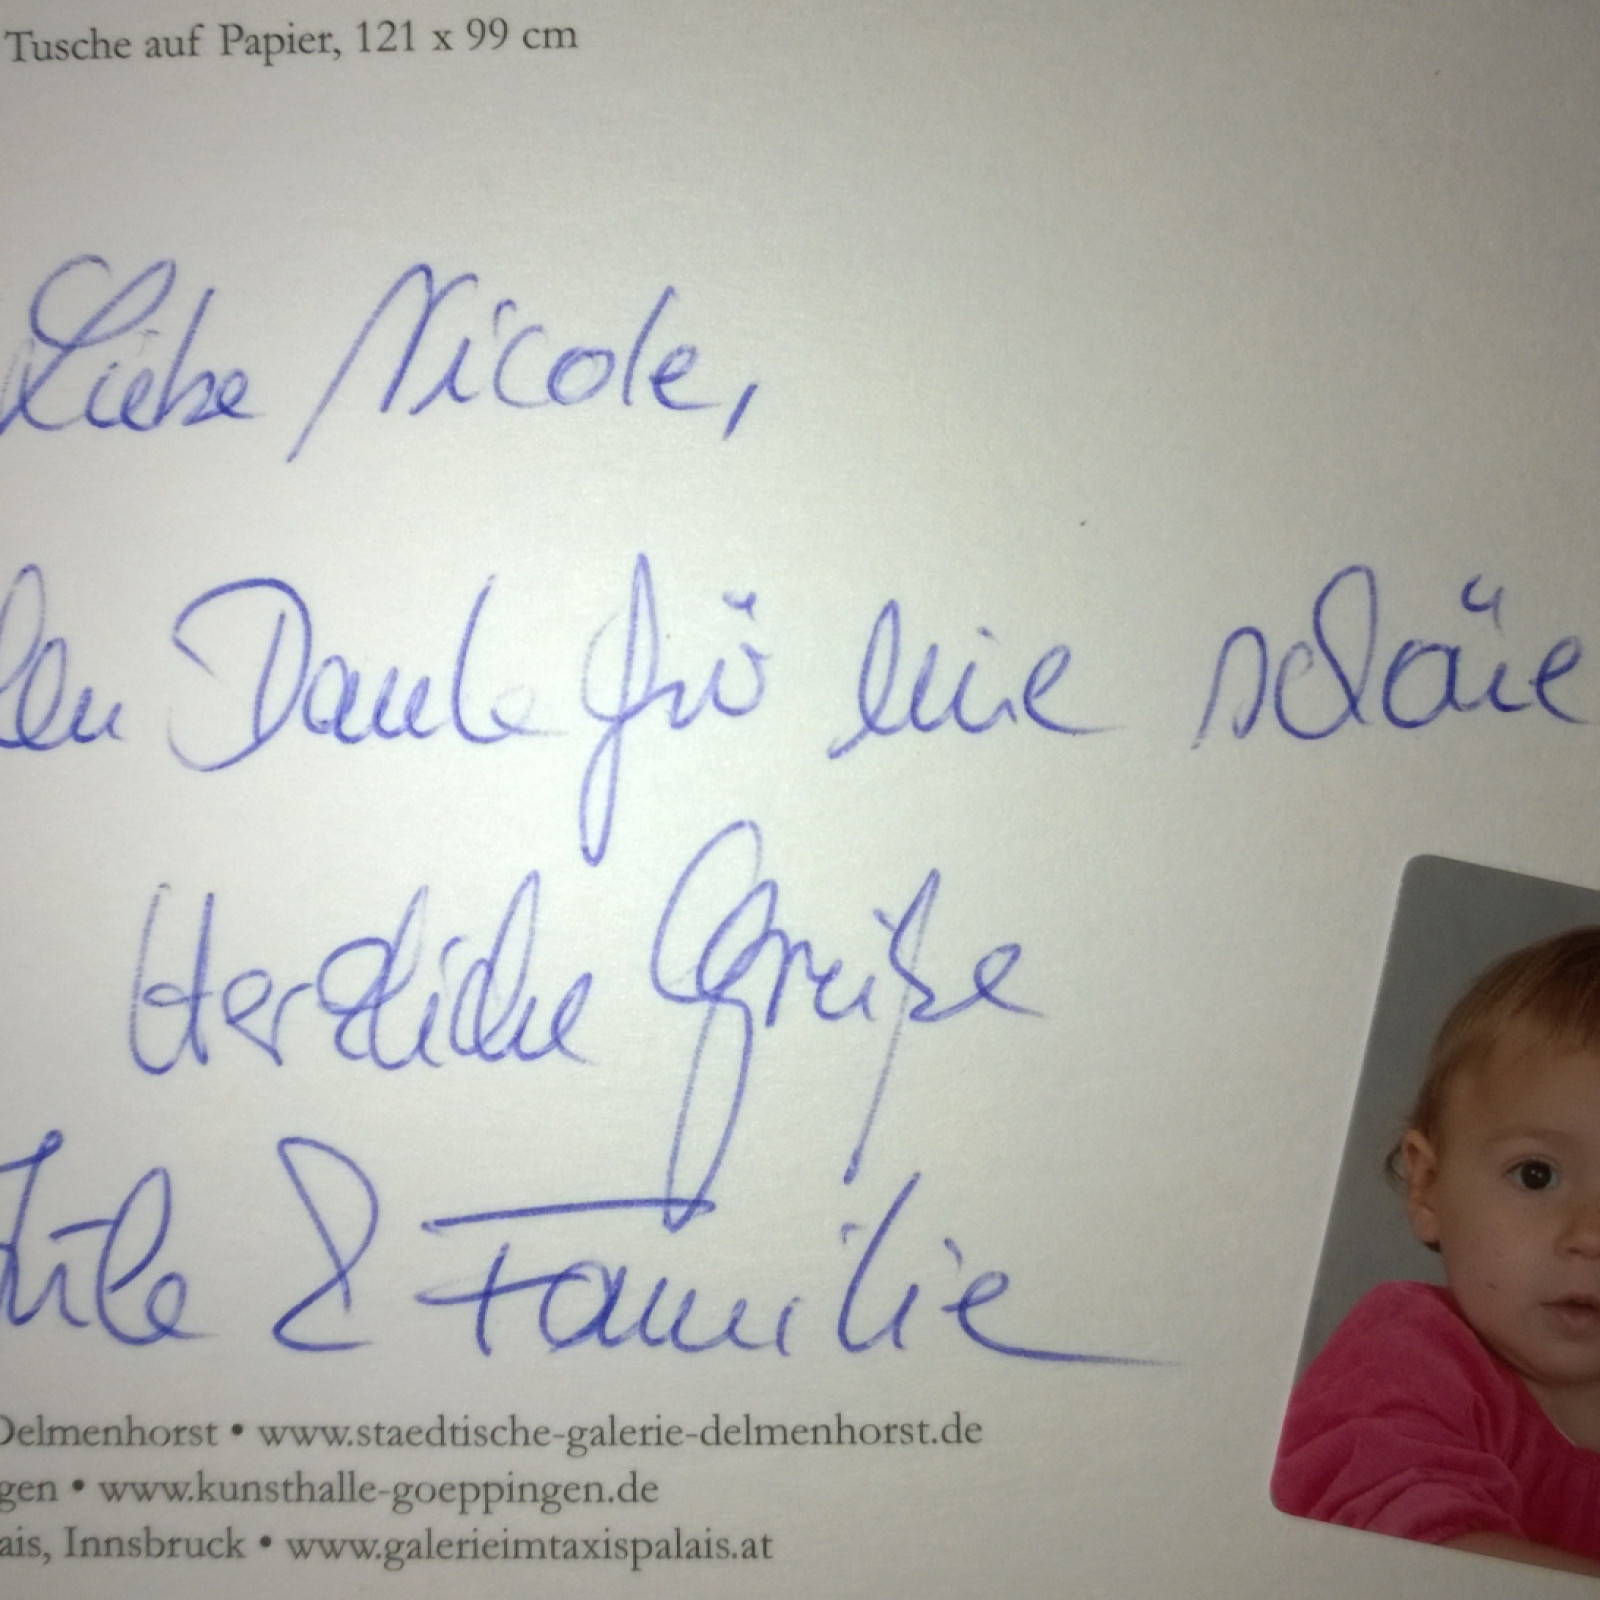 Tusche auf Papier, 121 x 99 cm
Liebe Nicole,
len Dank für
Herzliche Grüße
& Familie
Delmenhorst • www.staedtische-galerie-delmenhorst.de
gen • www.kunsthalle-goeppingen.de
ais, Innsbruck • www.galerieimtaxispalais.at